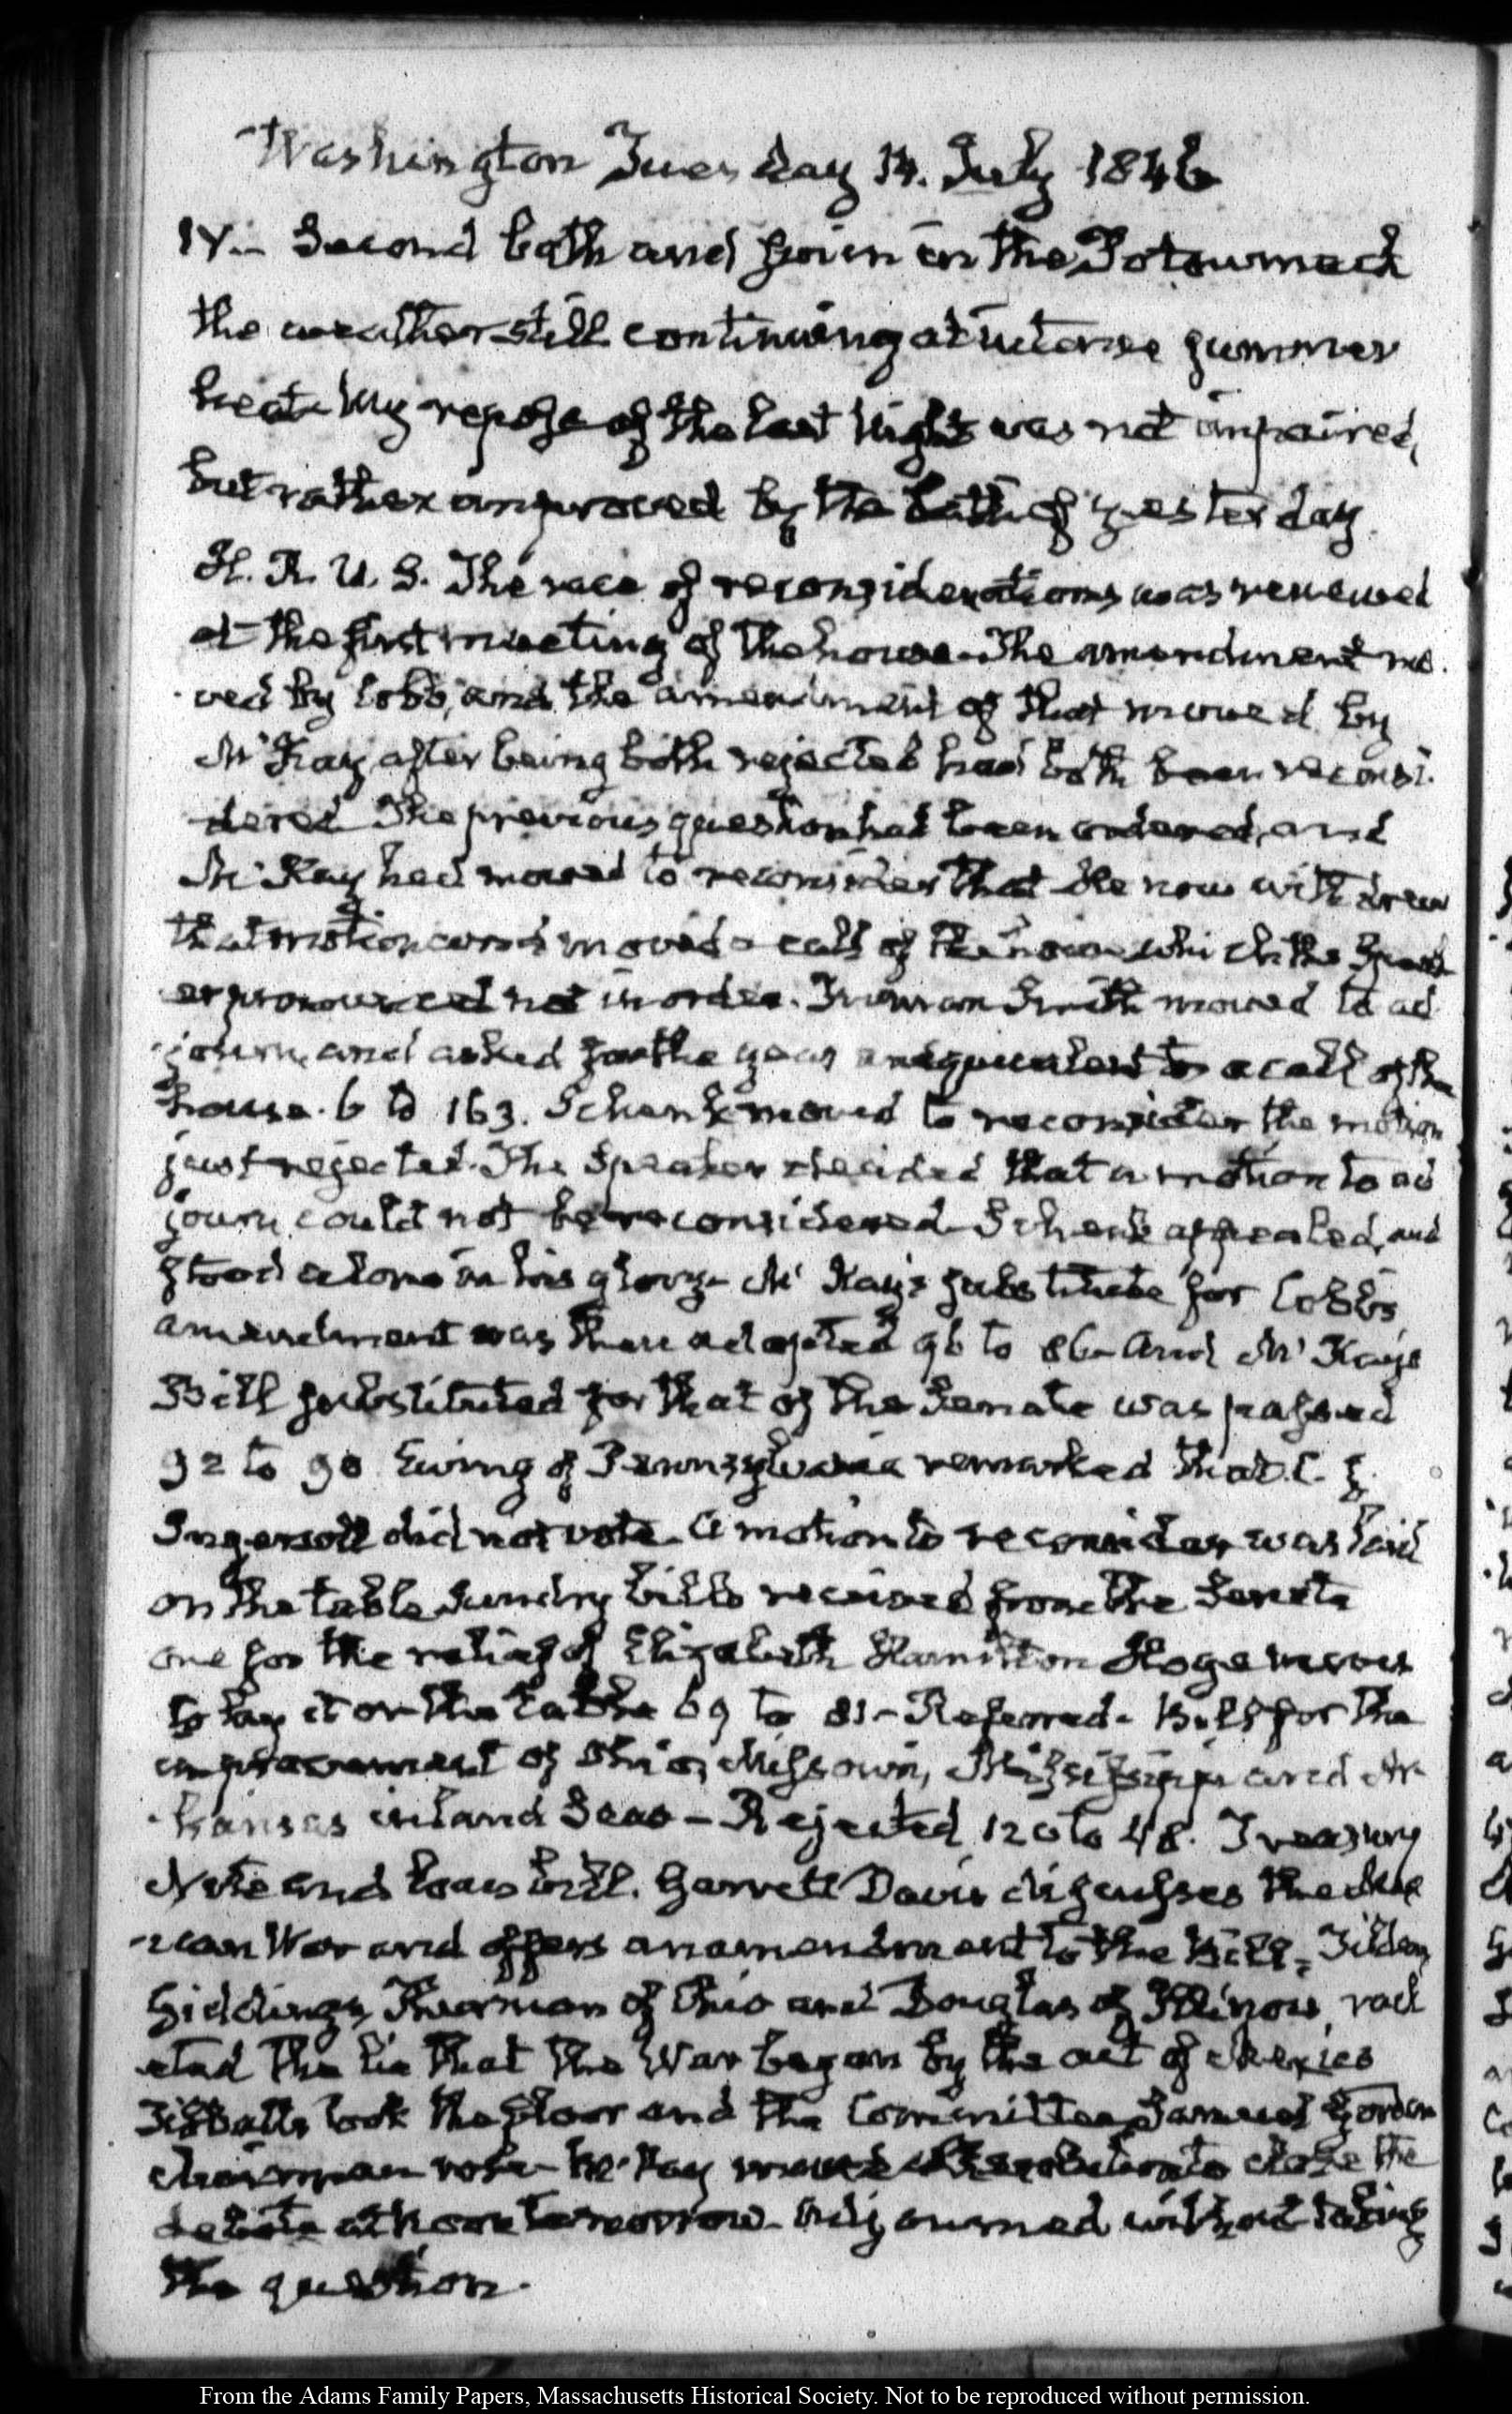 Washington Tuesday 14. July 1846
IV.— Second bath and swim in the Potowmack
the weather still continuing at intense summer
heat. My repose of the last Night was not impaired,
but rather improved by the bath of yesterday.
H. R. U. S. The race of reconsiderations was renewed
at the first meeting of the house. The amendment mo-
ved by Cobb, and the amendment of that moved by
McKay after being both rejected had both been reconsi-
dered. The previous question had been ordered, and
McKay had moved to reconsider that. He now withdrew
that motion and moved a call of the house which the Speak-
er pronounced not in order. Truman Smith moved to ad-
journ, and asked for the yeas equivalent to a call of the
house. 6 to 163. Schenk moved to reconsider the motion
just rejected. The Speaker decided that a motion to ad-
journ could not be reconsidered. Schenk appealed, and
stood alone in his glory— McKay's substitute for Cobb's
amendment was then adopted 96 to 86— And McKay's
Bill substituted for that of the Senate was passed
92 to 90 Ewing of Pennsylvania remarked that C. J.
Ingersoll did not vote. A motion to reconsider was laid
on the table. Sundry bills received from the Senate
one for the relief of Elizabeth Hamilton Hoge moves
to lay it on the table 69 to 81— Referred. Bill for the
improvement of Ohio, Missouri, Mississippi and Ar-
kansas inland Seas— Rejected 120 to 48. Treasury
Note and loan bill. Garrett Davis discusses the Mex-
ican War and offers an amendment to the bill. Tilden,
Giddings, Thurman of Ohio and Douglas of Illinois,
the lie that the War began by the act of Mexico
Tibbatts took the floor and the Committee, Samuel Gordon
chairman rose. McKay moved a Resolution to close the
debate at noon tomorrow. Adjourned without taking
the question.
From the Adams Family Papers, Massachusetts Historical Society. Not to be reproduced without permission.